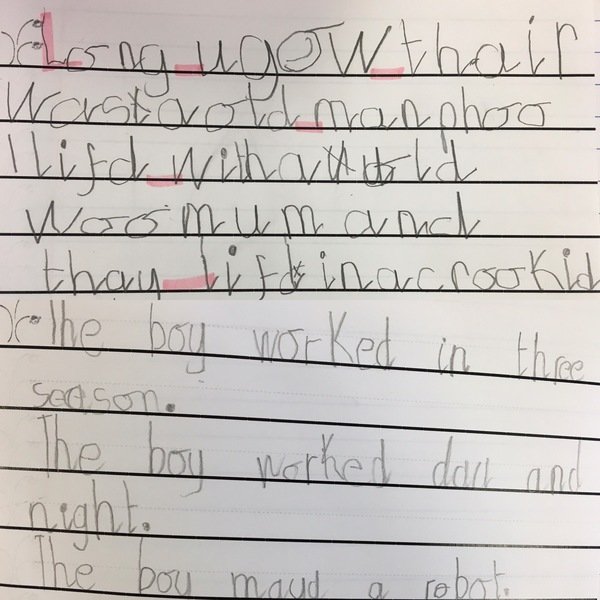 Long ugow thair
Wasta old man phoo
lifd with a old
woo mum and
thay lifd in a crookid
The boy worked in three
season.
The boy worked day and
night.
The boy mayd a robot.